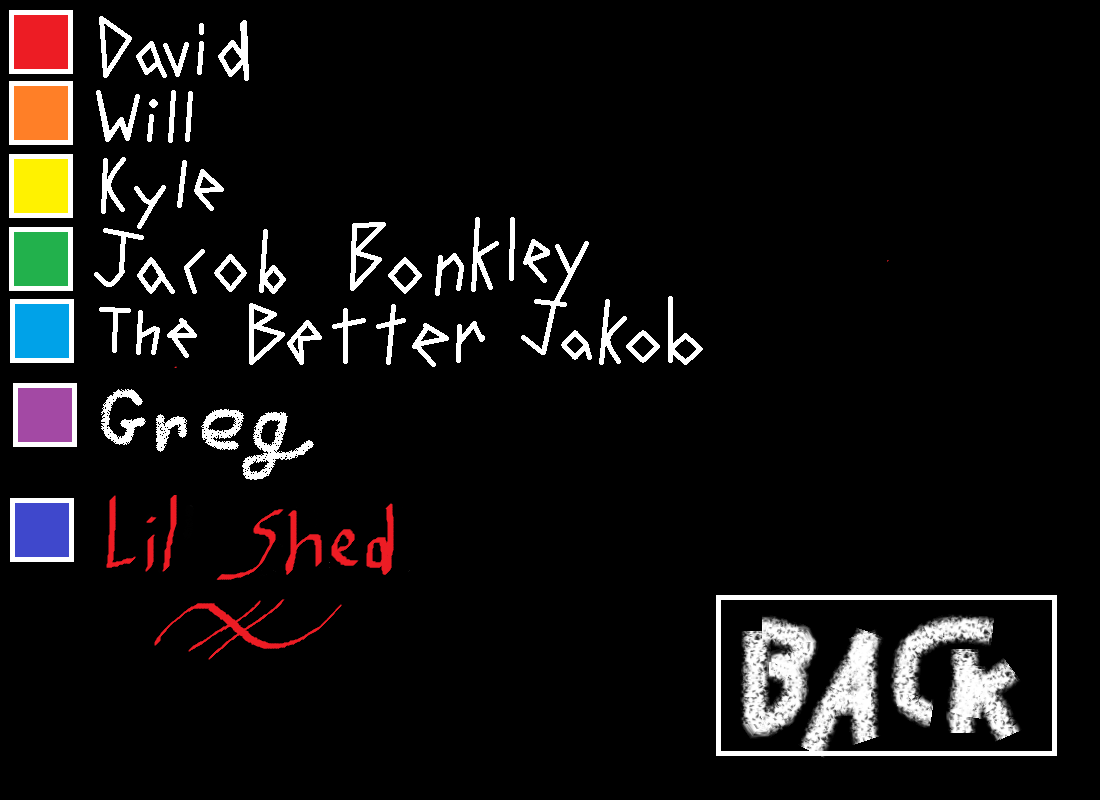 David
Will
Kyle
Jacob Bonkley
The Better Jakob
Greg
Lil Shed
BACK